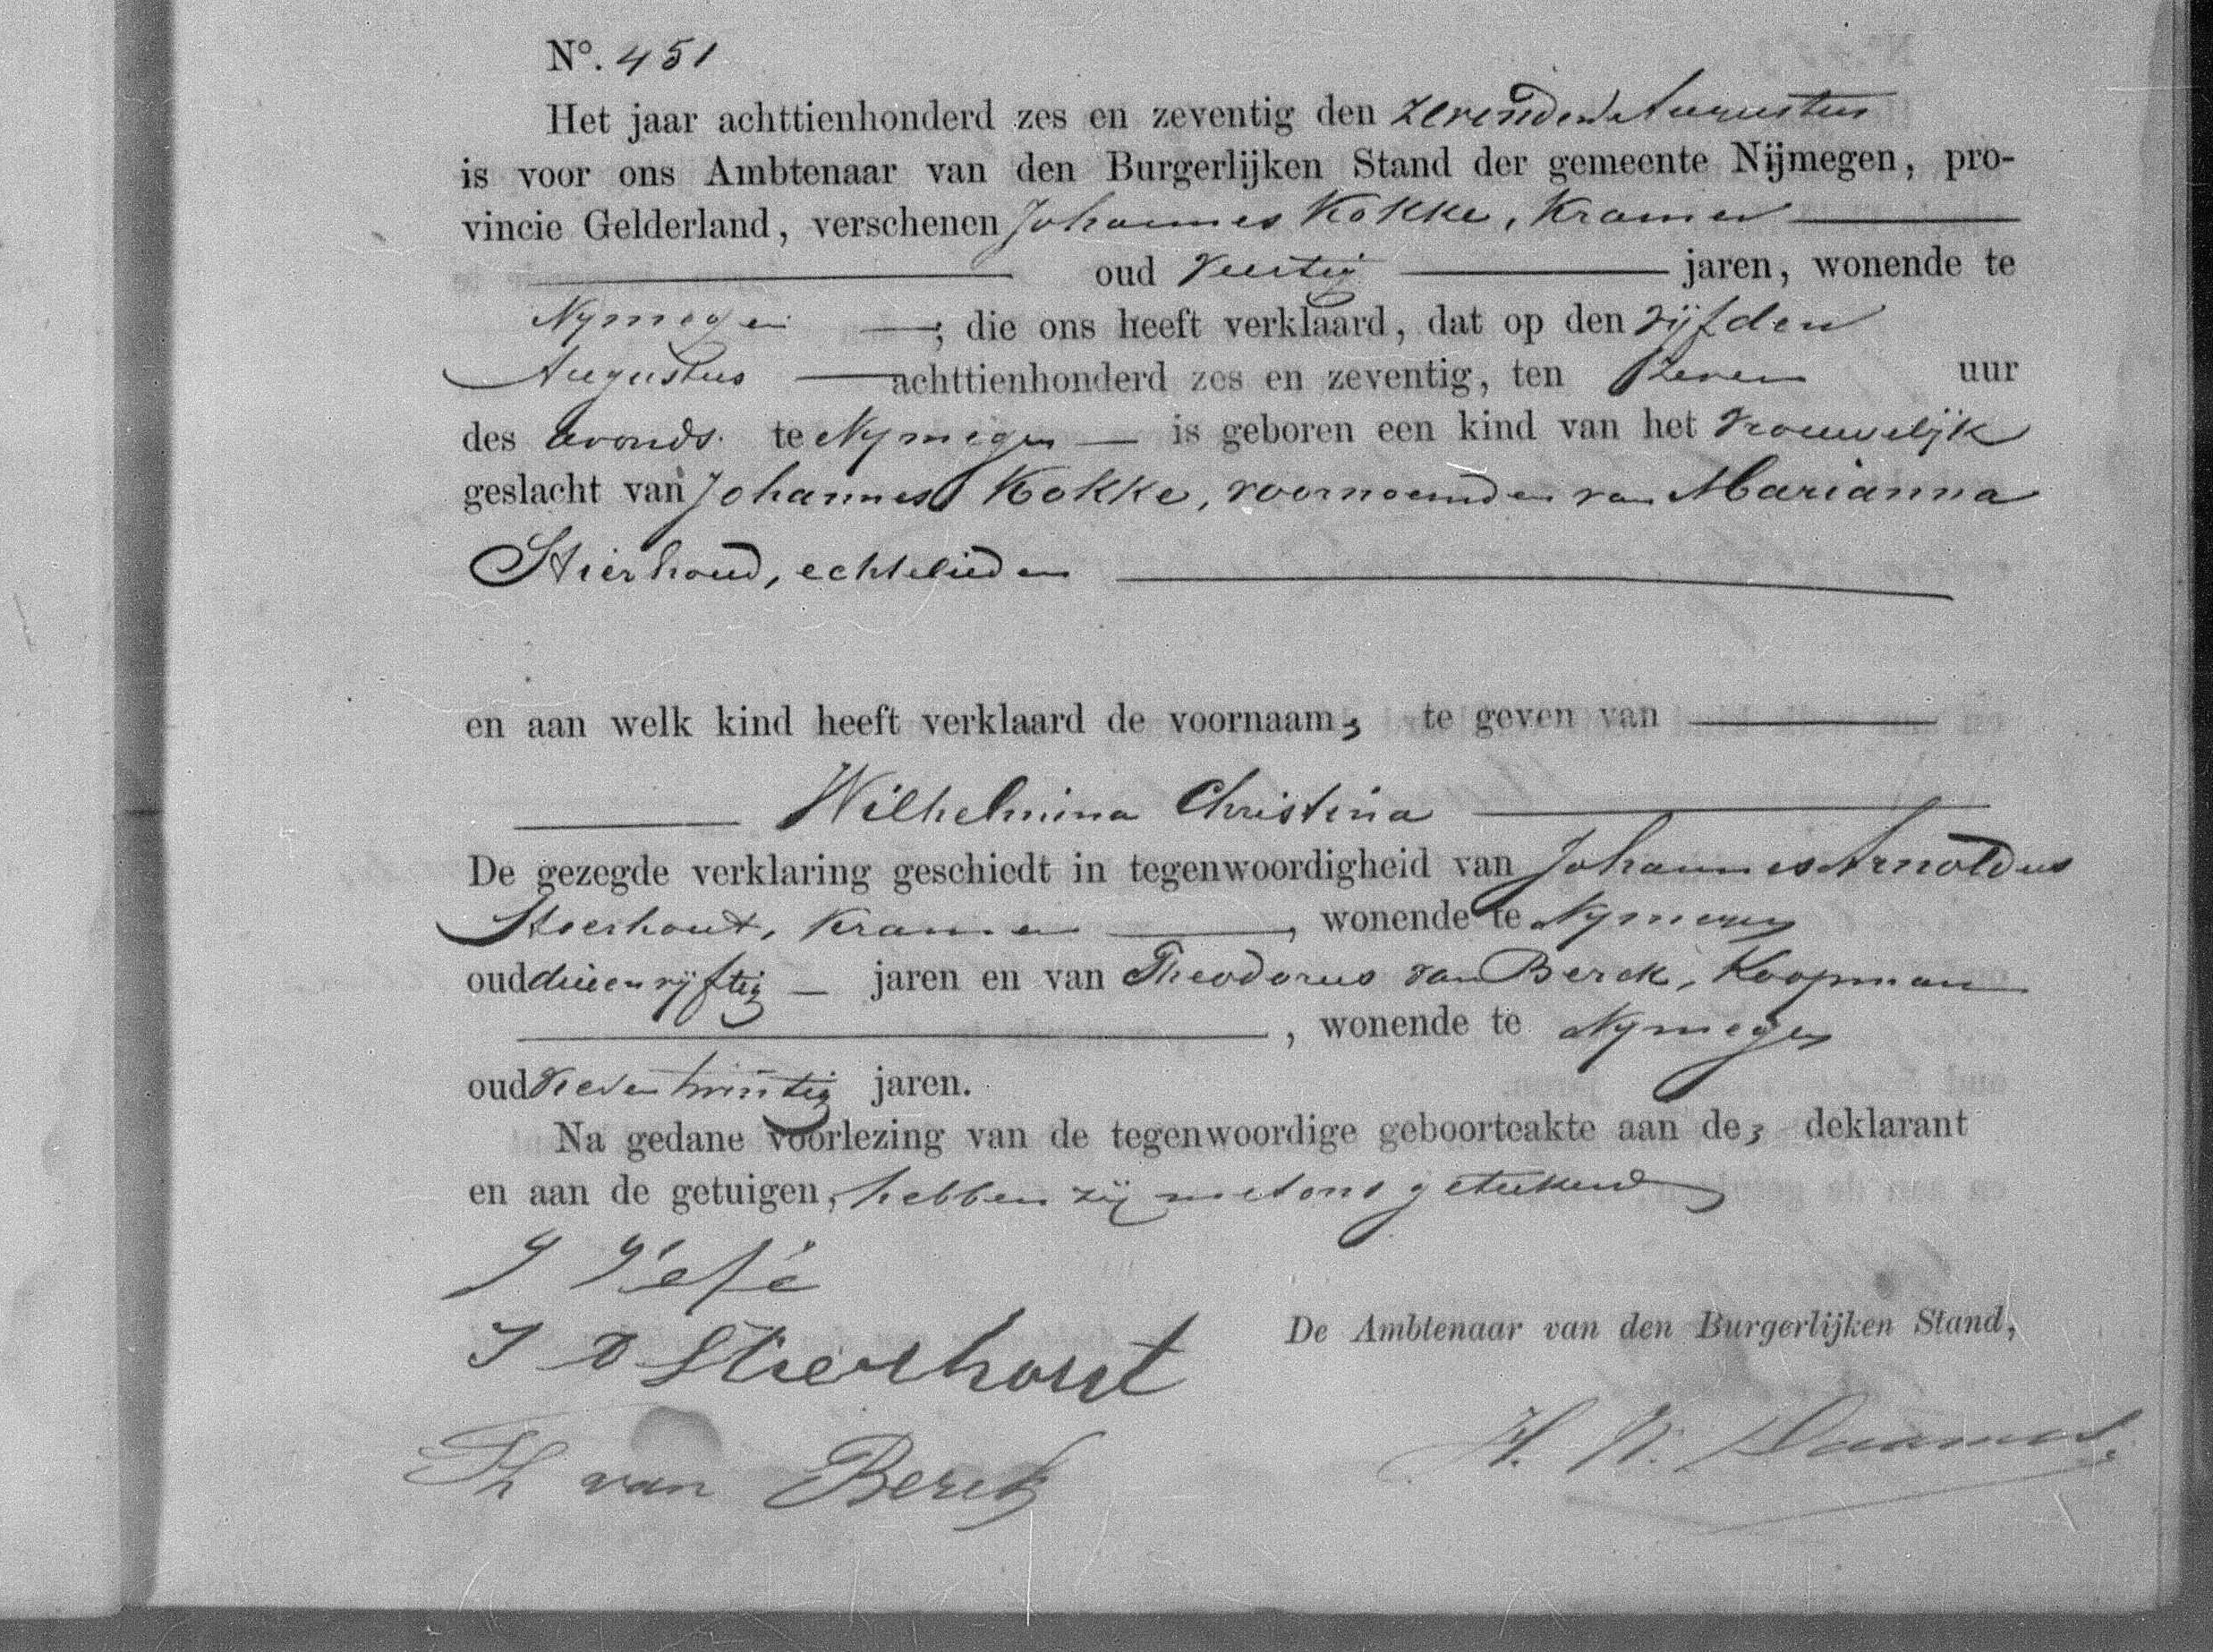 N°. 451
Het jaar achttienhonderd zes en zeventig den zevenden Augustus
is voor ons Ambtenaar van den Burgerlijken Stand der gemeente Nijmegen, pro-
vincie Gelderland, verschenen Johannes Kokke, Kramer
oud veertig jaren, wonende te
Nymegen ; die ons heeft verklaard, dat op den vijfden
Augustus achttienhonderd zes en zeventig, ten zeven uur
des avonds te Nymegen is geboren een kind van het vrouwelijk
geslacht van Johannes Kokke, voornoemd en van Marianna
Stierhoud, echtelieden
en aan welk kind heeft verklaard de voornaam, te geven van
Wilhelmina Christina
De gezegde verklaring geschiedt in tegenwoordigheid van Johannes Arnoldus
Stierhout, Kramer , wonende te Nymegen
oud drieenvijftig jaren en van Theodorus van Berck, Koopman
, wonende te Nymegen
oud vierentwintig jaren.
Na gedane voorlezing van de tegenwoordige geboorteakte aan de, deklarant
en aan de getuigen, hebben zij met ons geteekend
J
J Stierhout
De Ambtenaar van den Burgerlijken Stand,
Th van Berck
H. W.